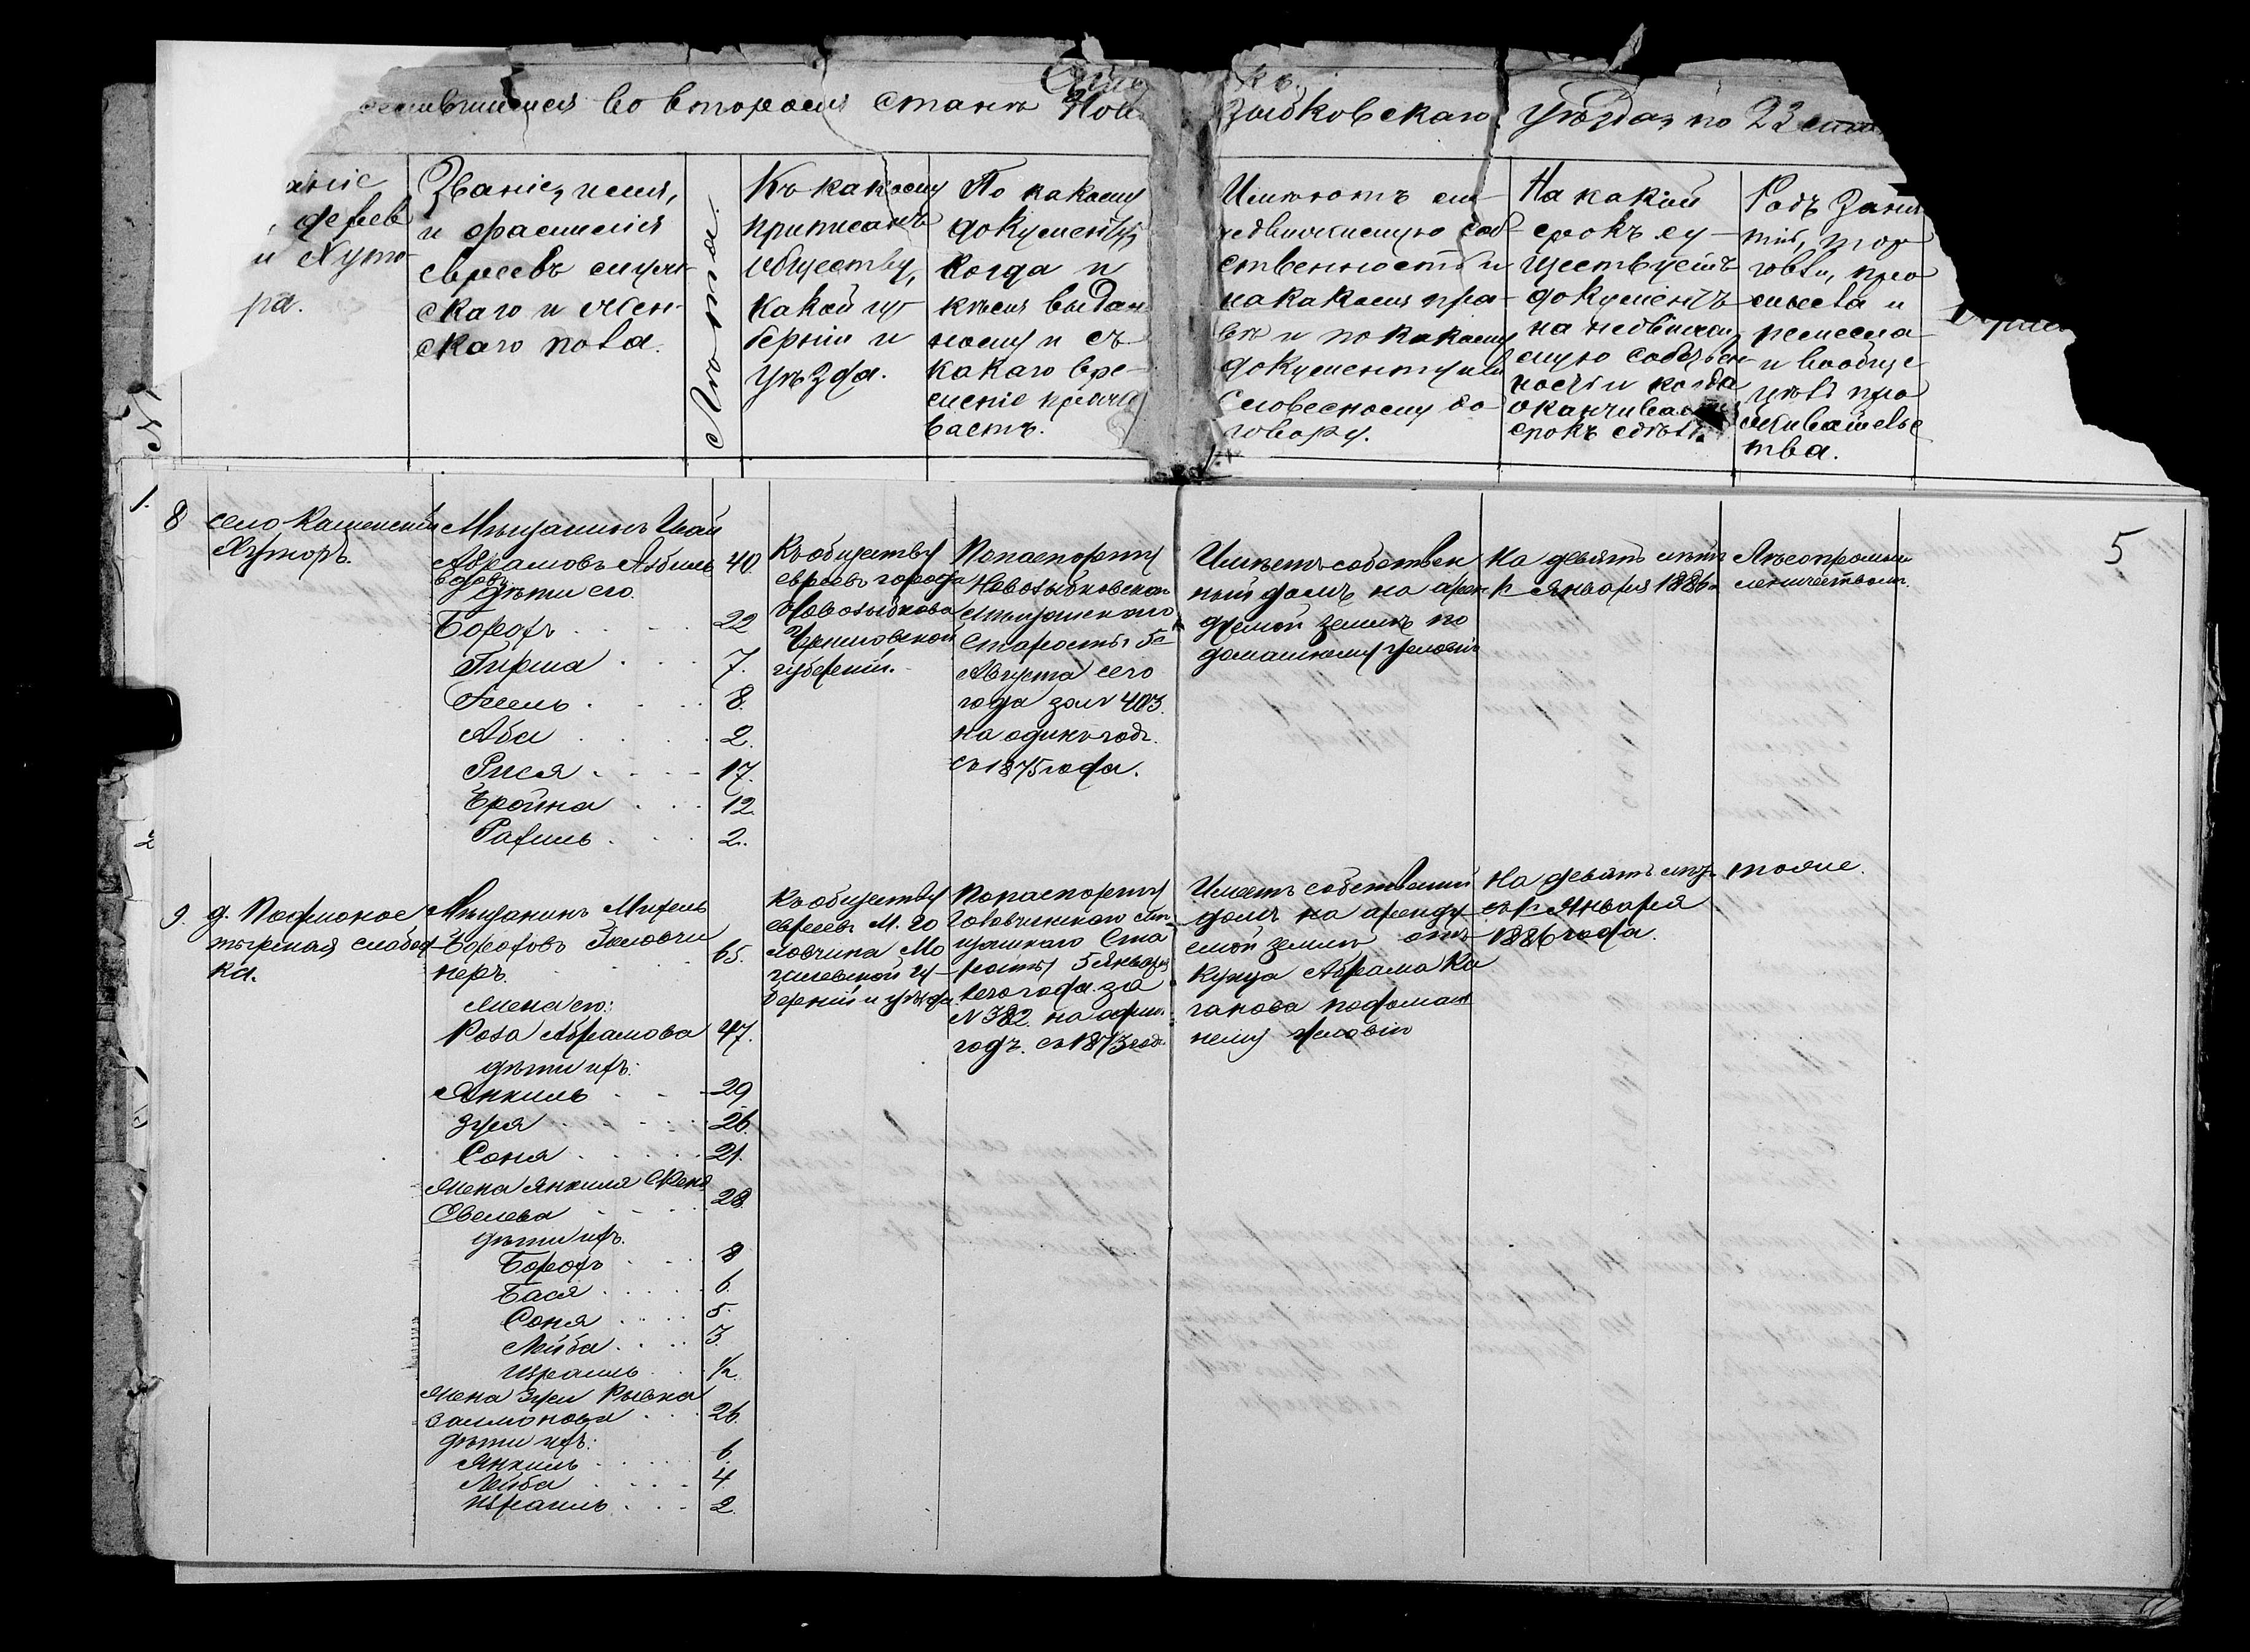 во второмъ станѣ Ново
зыбковскаго уѣзда по 23
аніе
дерев
и Хуто-
ра.
Званіе, имя,
и фамилія
евреевъ муж-
скаго и жен-
скаго пола.
Лѣта.
Къ какому
приписанъ
обществу,
какой гу-
берніи и
уѣзда.
По какому
документу,
когда и
кѣмъ выдан
ному и съ
какаго вре-
мени прожи
ваетъ.
Имѣютъ ли
недвижимую соб-
ственность и
на какомъ пра-
вѣ и по какому
документу или
словесному до-
говору.
На какой
срокъ су-
ществуетъ
документъ
на недвижи
мую собствен
ность и когда
оканчивается
срокъ
Родъ заня
тій, тор
говли, про
мысла и
ремесла
и вообще
про
живательс
тва.
1.
8
село Каменскій
Хуторъ.
Мѣщанинъ
Абрамовъ
40
дѣти его.
Борохъ
22
Гирша
7.
8.
Аба
2.
Рися
17.
Фройна
12
Рахиль
2.
Къ обществу
евреевъ города
Новозыбкова
Черниговской
губерніи.
По паспорту
Новозыбковскаго
мѣщанскаго
Старосты 5го
Августа сего
года за № 403.
на одинъ годъ.
съ 1875 года.
Имѣетъ собствен
ный домъ на арен
дуемой землѣ по
домашнему условію
На девять лѣтъ
Января 1886
Лѣсопромыш
5
2
9.
д.
слобод
ка.
Мѣщанинъ
Бороховъ
неръ.
65.
Жена его:
Роза Абрамова
47.
дѣти ихъ:
Янкиль
29
Зуся
26.
Соня
21.
Жена Янкиля
28.
дѣти ихъ.
Борохъ
8
Бася
6.
Соня
5.
Лейба
3.
Израиль
1/2
Жена Зуси Рывка
Залмонова
26.
дѣти ихъ:
Янкиль
6
Лейба
4.
Израиль
2.
Къ обществу
евреевъ М. Го
ловчина Мо
гилевской гу-
берніи и уѣзда.
По паспорту
Головчинскаго мѣ-
щанскаго Ста
росты 5 Января
сего года за
№ 382. на одинъ
годъ. съ 1873 года
Имѣетъ собственный
домъ на аренду-
емой землѣ отъ
Купца Абрама Ка
ганова по домаш
нему условію
На девять лѣтъ
съ 1 Января
1886 года.
тоже.